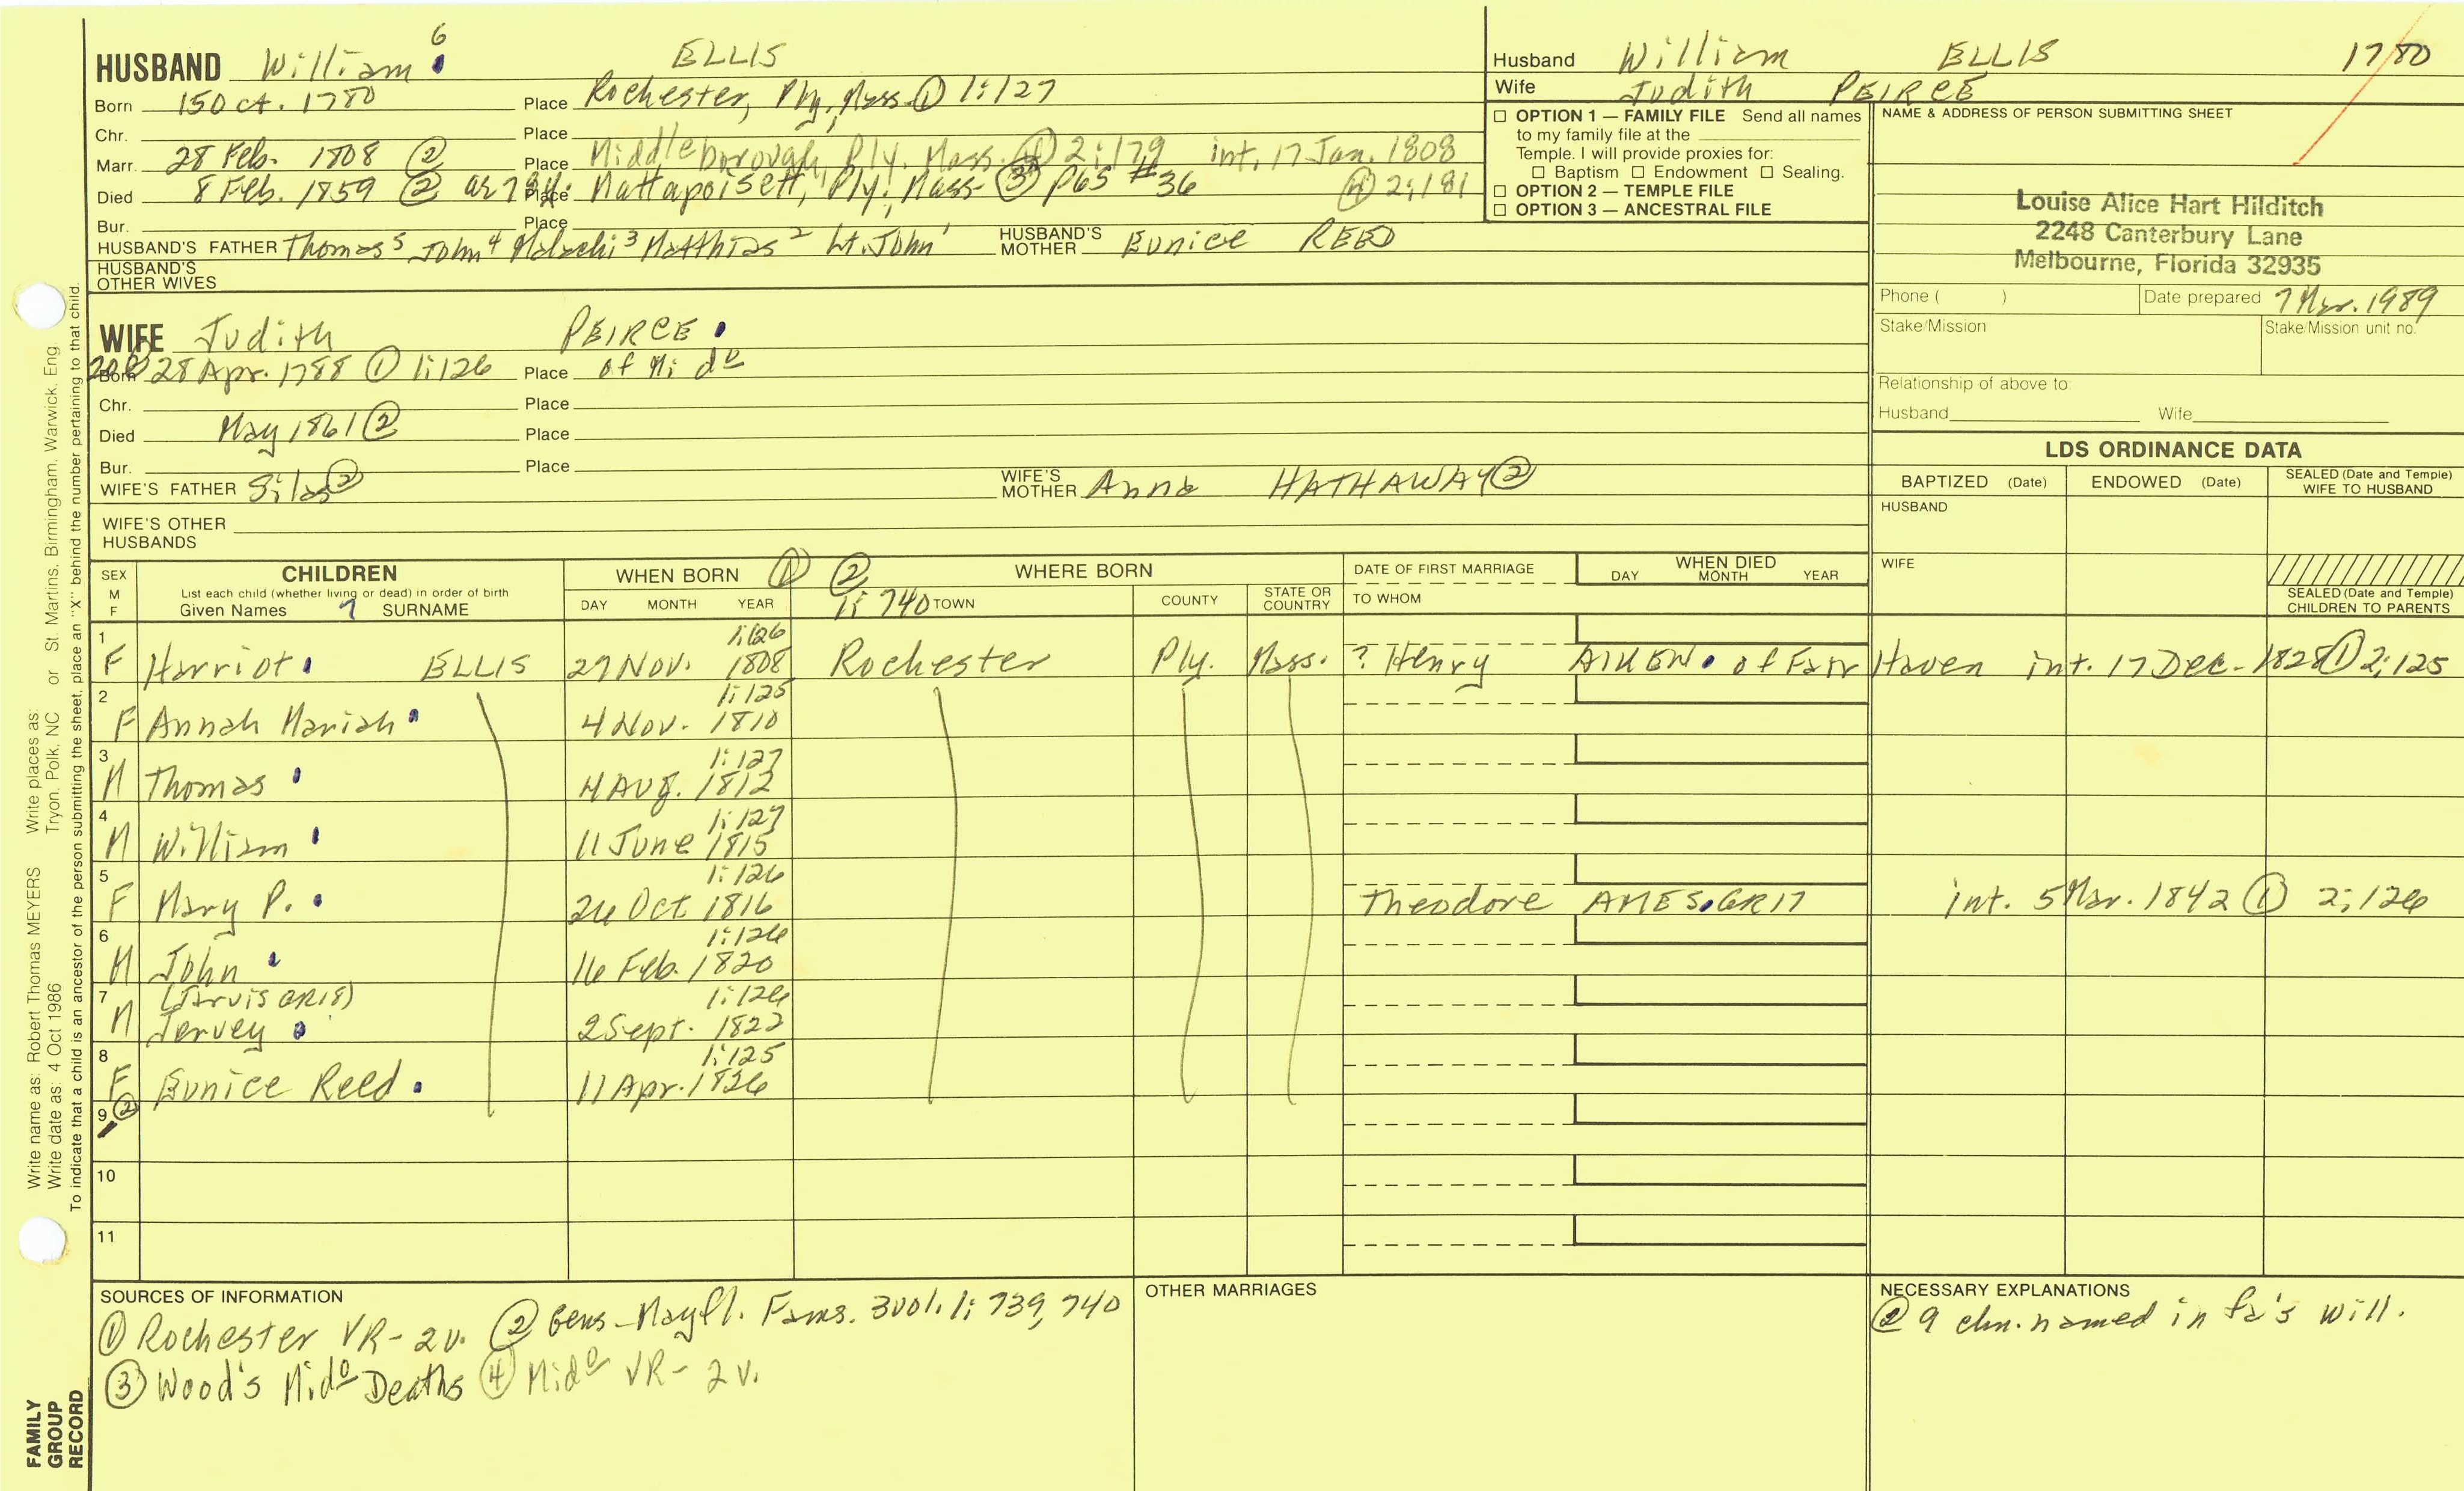 HUSBAND William 6 ELLIS
Born 15 Oct. 1780 Place Rochester, Ply, Mass. ① 1:127
Chr. Place
Marr. 28 Feb. 1808 ② Place Middleborough, Ply. Mass. ④ 2:179 int. 17 Jan. 1808
Died 8 Feb. 1859 ② ae 78y. Place Mattapoisett, Ply; Mass- ③ p65 #36 ④ 2;181
Bur. Place
HUSBAND'S FATHER Thomas 5 John 4 Malachi 3 Matthias 2 Lt. John 1 HUSBAND'S MOTHER Eunice REED
HUSBAND'S OTHER WIVES
Husband William ELLIS 1780
Wife Judith PEIRCE
☐ OPTION 1 — FAMILY FILE Send all names
to my family file at the
Temple. I will provide proxies for:
☐ Baptism ☐ Endowment ☐ Sealing.
☐ OPTION 2 — TEMPLE FILE
☐ OPTION 3 — ANCESTRAL FILE
NAME & ADDRESS OF PERSON SUBMITTING SHEET
Louise Alice Hart Hilditch
2248 Canterbury Lane
Melbourne, Florida 32935
Phone ( ) Date prepared 7 Mar. 1989
Stake/Mission Stake/Mission unit no.
Relationship of above to:
Husband Wife
WIFE Judith PEIRCE
Born 28 Apr. 1788 ① 1:126 Place of Mido
Chr. Place
Died May 1861 ② Place
Bur. Place
WIFE'S FATHER Silas ② WIFE'S MOTHER Anna HATHAWAY ②
WIFE'S OTHER HUSBANDS
LDS ORDINANCE DATA
BAPTIZED (Date) ENDOWED (Date) SEALED (Date and Temple) WIFE TO HUSBAND
HUSBAND
WIFE
SEALED (Date and Temple) CHILDREN TO PARENTS
SEX M F
CHILDREN
List each child (whether living or dead) in order of birth
Given Names SURNAME
WHEN BORN ① ②
DAY MONTH YEAR
WHERE BORN
1: 740 TOWN COUNTY STATE OR COUNTRY
DATE OF FIRST MARRIAGE
TO WHOM
WHEN DIED
DAY MONTH YEAR
1 1:126
F Harriot ELLIS 27 Nov. 1808 Rochester Ply. Mass. ? Henry AIKEN of Fair Haven int. 17 Dec. 1828 ① 2;125
2 1:125
F Annah Mariah 4 Nov. 1810
3 1:127
M Thomas 4 Aug. 1812
4 1:127
M William 11 June 1815
5 1:126
F Mary P. 26 Oct 1816 Theodore AMES. GR17 int. 5 Mar. 1842 ① 2;126
6 1:126
M John 16 Feb. 1820
7 (Jarvis GR18) 1:126
M Jervey 2 Sept. 1822
8 1:125
F Eunice Reed 11 Apr. 1826
9 ②
10
11
SOURCES OF INFORMATION
① Rochester VR- 2v. ② Gens-Mayfl. Fams. 3vol. 1: 739, 740
③ Wood's Mido Deaths ④ Mido VR- 2v.
OTHER MARRIAGES
NECESSARY EXPLANATIONS
② 9 chn. named in fa's will.
Write name as: Robert Thomas MEYERS Write places as:
Write date as: 4 Oct 1986 Tryon, Polk, NC or St. Martins, Birmingham, Warwick, Eng.
To indicate that a child is an ancestor of the person submitting the sheet, place an "X" behind the number pertaining to that child.
FAMILY
GROUP
RECORD